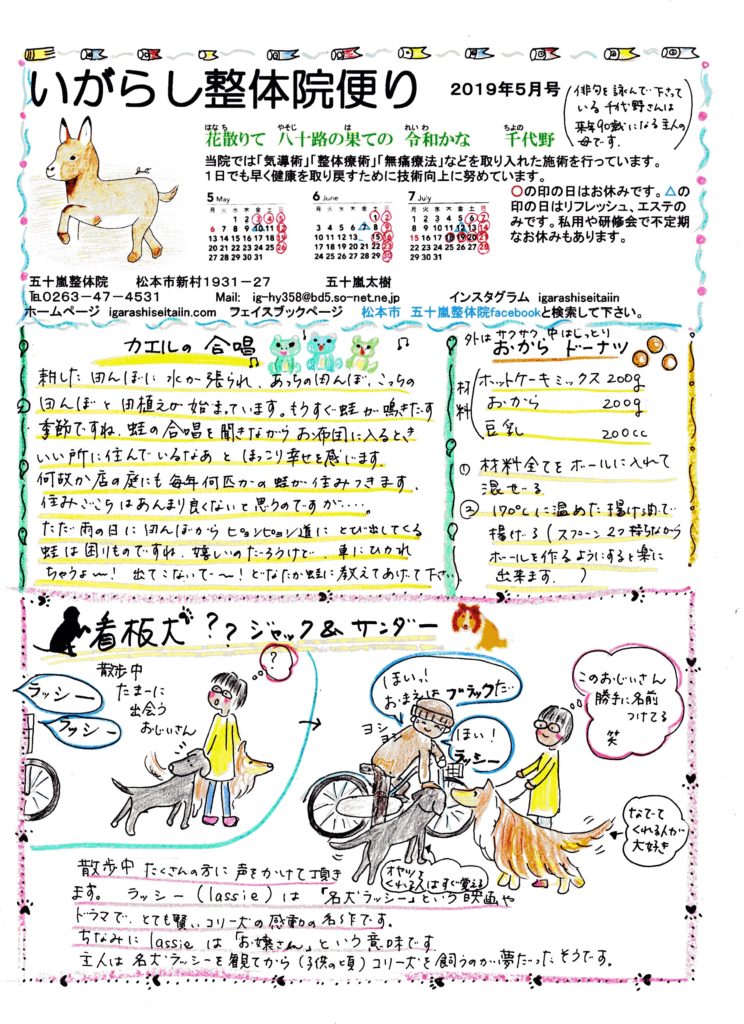 いがらし整体院便り
2019年5月号
(俳句を詠んで下さって
いる千代野さんは
来年90歳になる主人の
母です。)
はなち やそじ は れいわ ちよの
花散りて 八十路の果ての 令和かな 千代野
当院では「気導術」「整体療術」「無痛療法」などを取り入れた施術を行っています。
1日でも早く健康を取り戻すために技術向上に努めています。
5 May
月 火 水 木 金 土 日
1 2 3 4 5
6 7 8 9 10 11 12
13 14 15 16 17 18 19
20 21 22 23 24 25 26
27 28 29 30 31
6 June
月 火 水 木 金 土 日
1 2
3 4 5 6 7 8 9
10 11 12 13 14 15 16
17 18 19 20 21 22 23
24 25 26 27 28 29 30
7 July
月 火 水 木 金 土 日
1 2 3 4 5 6 7
8 9 10 11 12 13 14
15 16 17 18 19 20 21
22 23 24 25 26 27 28
29 30 31
○の印の日はお休みです。△の
印の日はリフレッシュ、エステの
みです。私用や研修会で不定期
なお休みもあります。
五十嵐整体院 松本市新村1931-27 五十嵐太樹
℡0263-47-4531 Mail: ig-hy358@bd5.so-net.ne.jp インスタグラム igarashiseitaiin
ホームページ igarashiseitaiin.com フェイスブックページ 松本市 五十嵐整体院facebookと検索して下さい。
カエルの 合唱
耕した田んぼに水が張られ、あっちの田んぼ、こっちの
田んぼと田植えが始まっています。もうすぐ蛙が鳴きだす
季節ですね。蛙の合唱を聞きながらお布団に入るとき
いい所に住んでいるなあとほっこり幸せを感じます。
何故か店の庭にも毎年何匹かの蛙が住みつきます。
住みごこちはあんまり良くないと思うのですが…。
ただ雨の日に田んぼからピョンピョン道にとび出してくる
蛙は困りものですね。嬉しいのだろうけど、車にひかれ
ちゃうよ～! 出てこないで～! どなたか蛙に教えてあげて下さい
外はサクサク 中はしっとり
おから ドーナツ
材料
ホットケーキミックス 200g
おから 200g
豆乳 200cc
① 材料全てをボールに入れて
混ぜる
② 170℃に温めた揚げ油で
揚げる(スプーン2つ持ちながら
ボールを作るようにすると楽に
出来ます。)
看板犬?? ジャック&サンダー
散歩中
たまーに
出会う
おじいさん
?
ラッシー
ラッシー
→
ほいっ!
おまえは ブラックだ
ヨシ
ヨシ
ほい!
ラッシー
このおじいさん
勝手に名前
つけてる
笑
なでて
くれる人が
大好き
オヤツを
くれる人はすぐ覚える
散歩中 たくさんの方に声をかけて頂き
ます。 ラッシー(lassie)は「名犬ラッシー」という映画や
ドラマで、とても賢いコリー犬の感動の名作です。
ちなみに lassie は「お嬢さん」という意味です。
主人は 名犬ラッシーを観てから(子供の頃) コリー犬を飼うのが夢だったそうです。